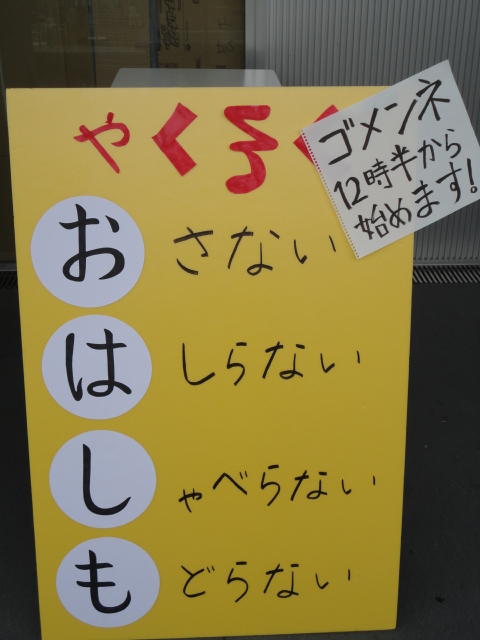 やくそく
ゴメンネ
12時半から
始めます!
お さない
は しらない
し ゃべらない
も どらない